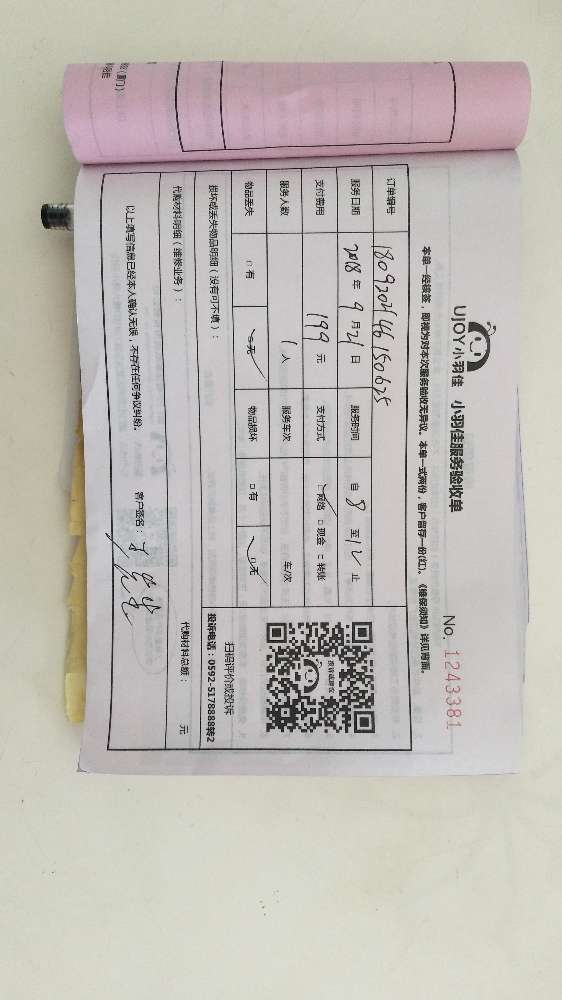 UJOY小羽佳 小羽佳服务验收单
No. 1243381
本单一经核签，即视为对本次服务验收无异议。本单一式两份，客户留存一份(红)。《维保须知》详见背面。
订单编号 180920146150625
服务日期 2018 年 9 月 21 日 服务时间 自 8 至 12 止
支付费用 199 元 支付方式 网络 □ 现金 □ 转账
服务人数 1 人 服务车次 车/次
物品丢失 □ 有 □ 无 物品损坏 □ 有 □ 无
损坏或丢失物品明细（没有可不填）：
扫码评价或投诉
投诉电话：0592-5178888转2
代购材料明细（维修业务）：
代购材料总额： 元
以上填写信息已经本人确认无误，不存在任何争议纠纷。 客户签名：